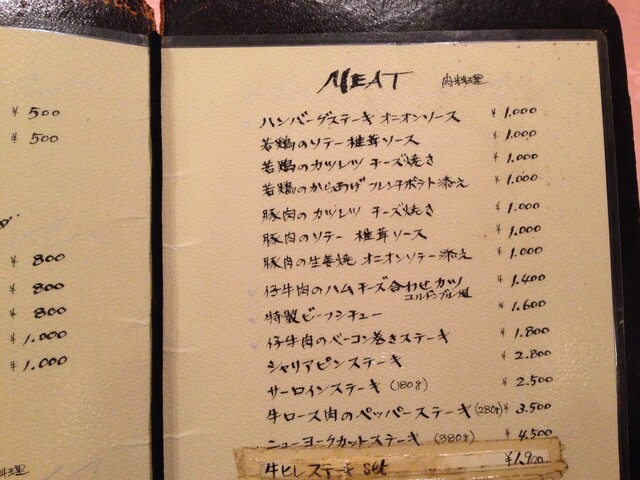 ¥500
¥500
¥800
¥800
¥800
¥1.000
¥1.000
MEAT 肉料理
ハンバーグステーキ オニオンソース ¥1.000
若鶏のソテー 椎茸ソース ¥1.000
若鶏のカツレツ チーズ焼き ¥1.000
若鶏のからあげ フレンチポテト添え ¥1.000
豚肉のカツレツ チーズ焼き ¥1.000
豚肉のソテー 椎茸ソース ¥1.000
豚肉の生姜焼 オニオンソテー添え ¥1.000
仔牛肉のハムチーズ合わせカツ ¥1.400
コルドンブルー風
特製ビーフシチュー ¥1.600
仔牛肉のベーコン巻きステーキ ¥1.800
シャリアピンステーキ ¥2.800
サーロインステーキ (180g) ¥2.500
牛ロース肉のペッパーステーキ (280g) ¥3.500
ニューヨークカットステーキ (380g) ¥4.500
牛ヒレステーキ set ¥1.900